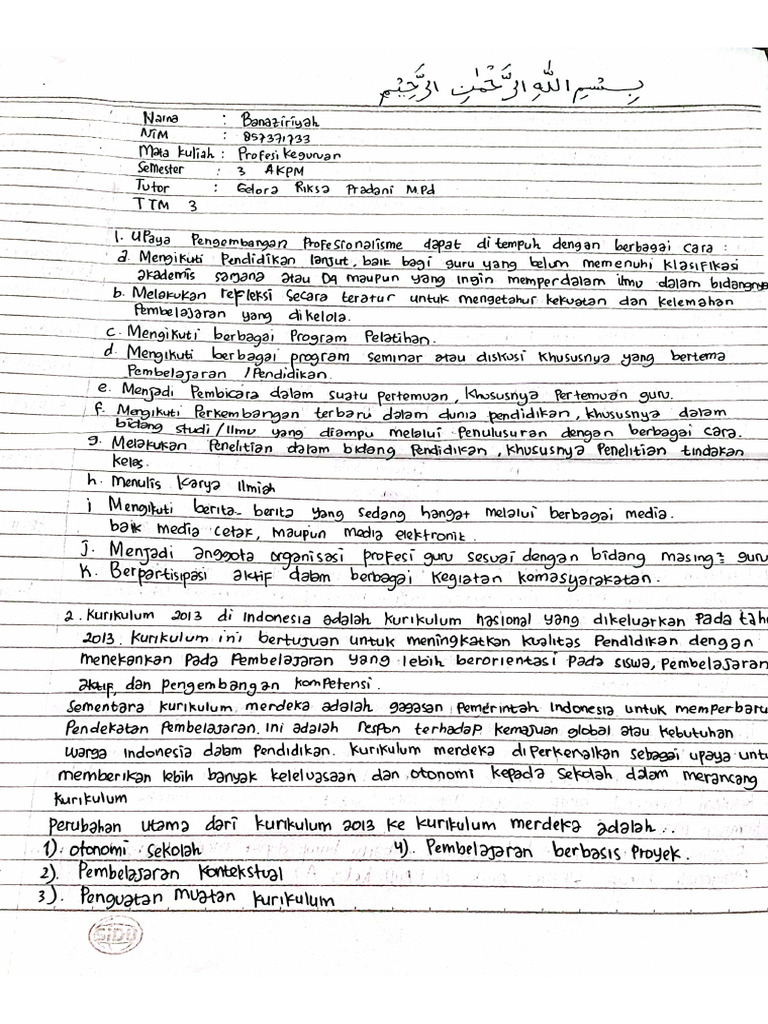 بِسْمِ اللهِ الرَّحْمٰنِ الرَّحِيْمِ
Nama : Banaziriyah
NIM : 857371733
Mata kuliah : Profesi Keguruan
Semester : 3 AKPM
Tutor : Gelora Riksa Pradani M.Pd
TTM 3
1. Upaya Pengembangan Profesionalisme dapat ditempuh dengan berbagai cara :
a. Mengikuti Pendidikan lanjut, baik bagi guru yang belum memenuhi klasifikasi
akademis sarjana atau D4 maupun yang ingin memperdalam ilmu dalam bidangnya
b. Melakukan refleksi secara teratur untuk mengetahui kekuatan dan kelemahan
Pembelajaran yang dikelola.
c. Mengikuti berbagai Program Pelatihan.
d. Mengikuti berbagai program seminar atau diskusi khususnya yang bertema
Pembelajaran / Pendidikan.
e. Menjadi Pembicara dalam suatu pertemuan, khususnya Pertemuan guru.
f. Mengikuti Perkembangan terbaru dalam dunia pendidikan, khususnya dalam
bidang studi / Ilmu yang diampu melalui Penulusuran dengan berbagai cara.
g. Melakukan Penelitian dalam bidang Pendidikan, khususnya Penelitian tindakan
kelas.
h. Menulis Karya Ilmiah
i Mengikuti berita-berita yang sedang hangat melalui berbagai media.
baik media cetak, maupun media elektronik.
j. Menjadi anggota organisasi profesi guru sesuai dengan bidang masing² guru
k. Berpartisipasi aktif dalam berbagai kegiatan kemasyarakatan.
2. Kurikulum 2013 di Indonesia adalah kurikulum nasional yang dikeluarkan Pada tah
2013. Kurikulum ini bertujuan untuk meningkatkan kualitas Pendidikan dengan
menekankan Pada Pembelajaran yang lebih berorientasi Pada siswa, Pembelajaran
aktif, dan pengembangan kompetensi.
Sementara kurikulum merdeka adalah gagasan Pemerintah Indonesia untuk memperbaru
Pendekatan Pembelajaran. Ini adalah respon terhadap kemajuan global atau kebutuhan
warga Indonesia dalam Pendidikan. Kurikulum merdeka diperkenalkan sebagai upaya untu
memberikan lebih banyak keleluasaan dan otonomi kepada sekolah dalam merancang
kurikulum
Perubahan utama dari kurikulum 2013 ke kurikulum merdeka adalah..
1). Otonomi sekolah 4). Pembelajaran berbasis Proyek.
2). Pembelajaran Kontekstual
3). Penguatan Muatan Kurikulum
SIDU